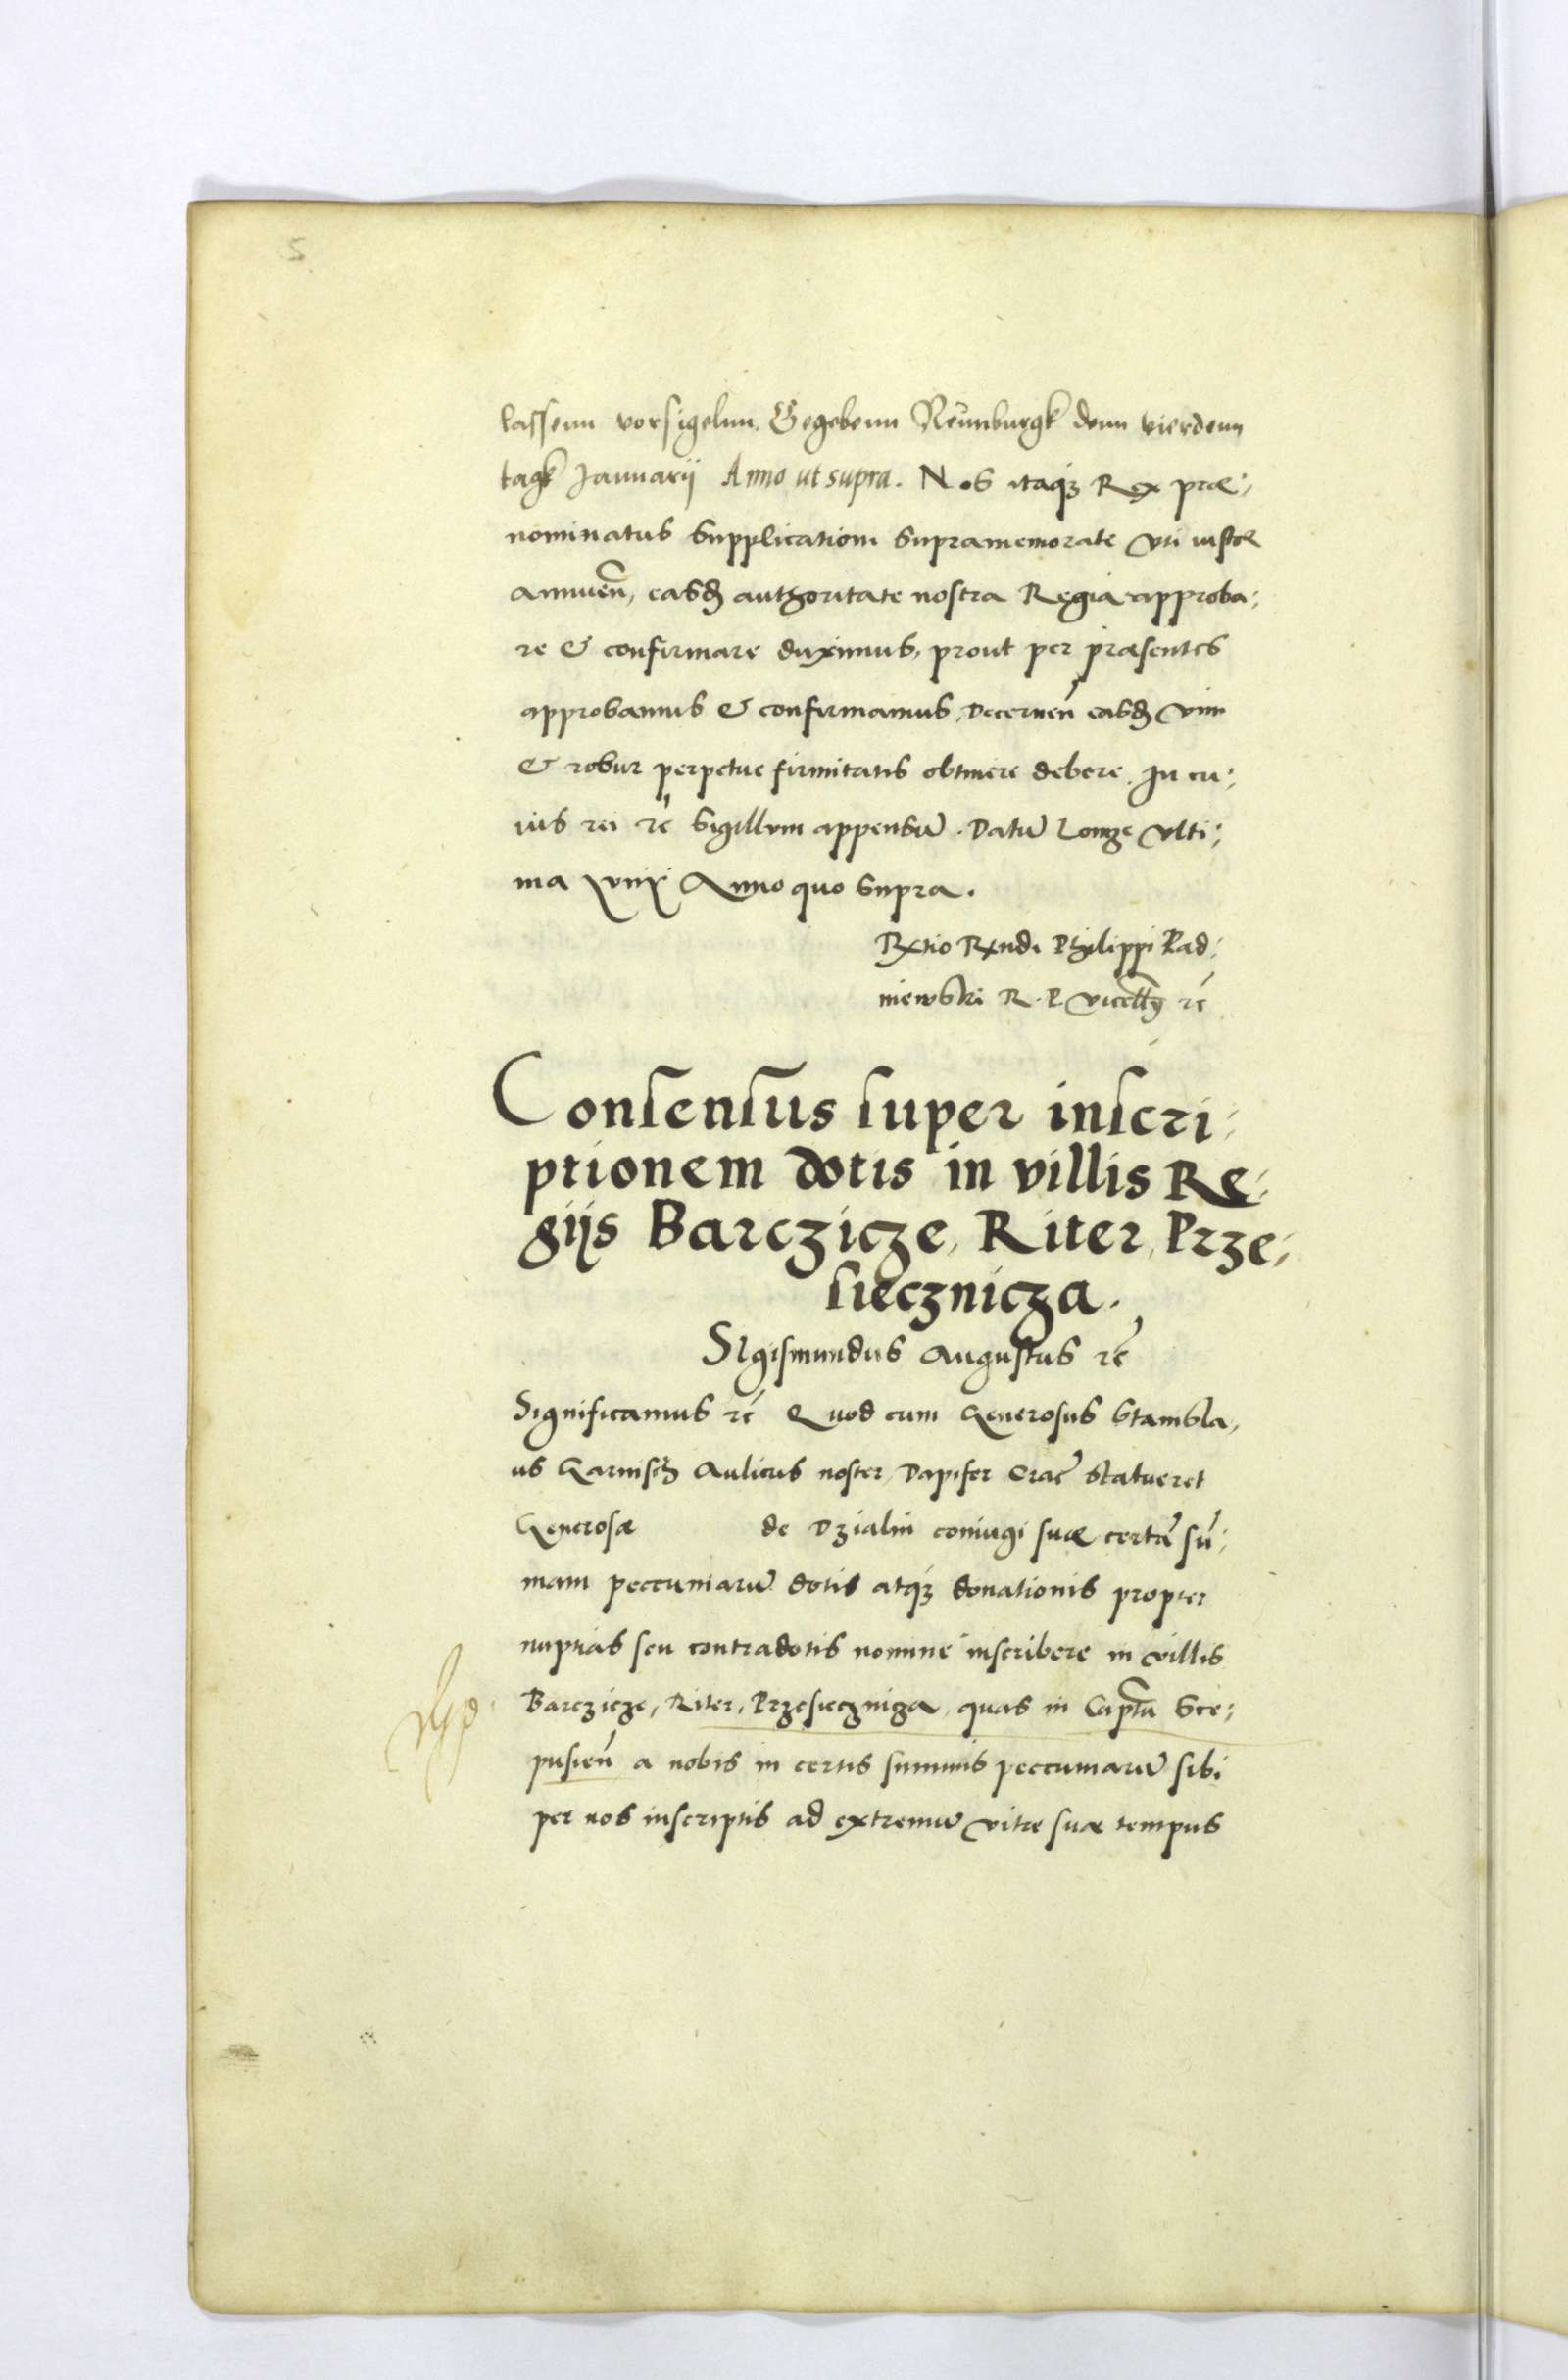 5
lassenn vorsigelnn. Gegebenn Neunburgk denn vierdenn
tagk Januarij Anno ut supra. Nos itaq3 Rex præ:
nominatus supplicationi supramemorate vti iustæ
annuen̄, easd3 authoritate nostra Regia approba:
re & confirmare duximus, prout per præsentes
approbamus & confirmamus, Decernen̄ easd3 vim
& robur perpetue firmitatis obtinere debere. In cu:
ius rei rc̄ sigillum appensū. Datū Lomze vlti:
ma Anno quo supra.
Rndi Philippi Pad:
niewski R. P. rc̄
Consensus super inscri:
ptionem dotis in villis Re:
gijs Barczicze, Riter, Prze:
siecznicza.
Sigismundus Augustus rc̄
Significamus rc̄ Quod cum Generosus Stanisla,
us Garnisch Aulicus noster, Dapifer Crac̄ statueret
Generosæ de Dzialin coniugi suæ certā sū:
mam peccuniarū dotis atq3 donationis propter
nuptias seu contradotis nomine inscribere in villis
Barczicze, Riter, Przesiecznicza, quas in Capt̄u Sce:
pusien̄ a nobis in certis summis peccuniarū sibi
per nos inscriptis ad extremū vitæ suæ tempus